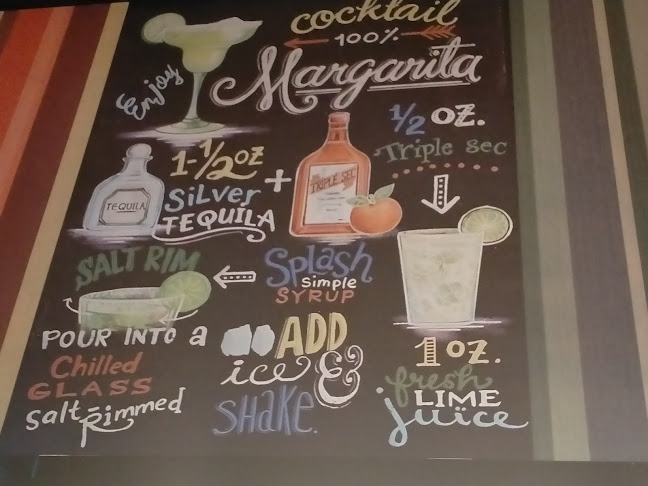 Enjoy
cocktail
100%
Margarita
1-1/2oz
Silver
TEQUILA
TEQUILA
+
TRIPLE SEC
1/2 oz.
Triple sec
1 oz.
fresh
LIME
juice
Splash
simple
SYRUP
SALT RIM
ADD
ice &
SHAKE.
POUR INTO a
Chilled
GLASS
Salt-Rimmed